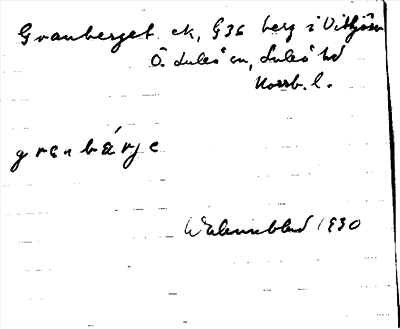 Granberget ek, G36 berg i Vitsjön
Ö. Luleå sn, Luleå hd
Norrb. l.
granbärje
Wahlenblad 1930